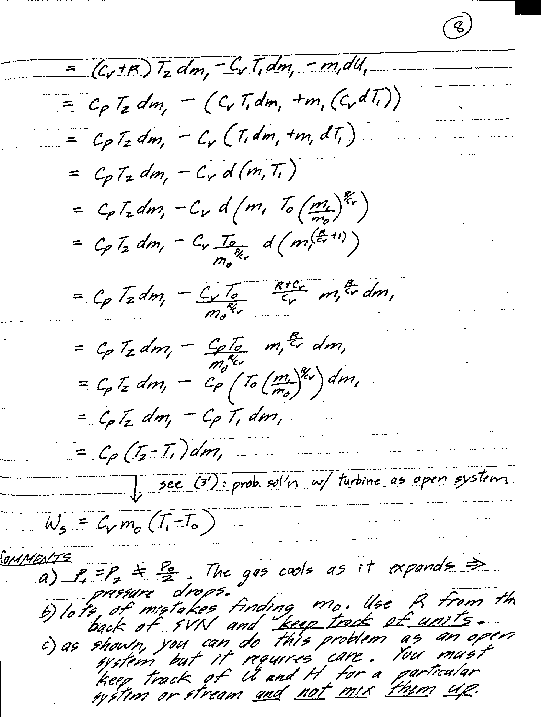 8
= (Cv+R) T2 dm1 - Cv T1 dm1 - m1 dU1
= Cp T2 dm1 - (Cv T1 dm1 + m1 (Cv dT1))
= Cp T2 dm1 - Cv (T1 dm1 + m1 dT1)
= Cp T2 dm1 - Cv d(m1 T1)
= Cp T2 dm1 - Cv d(m1 T0 (m1/m0)^(R/Cv))
= Cp T2 dm1 - Cv T0/m0^(R/Cv) d(m1^(R/Cv +1))
= Cp T2 dm1 - Cv T0/m0^(R/Cv) (R+Cv)/Cv m1^(R/Cv) dm1
= Cp T2 dm1 - Cp T0/m0^(R/Cv) m1^(R/Cv) dm1
= Cp T2 dm1 - Cp (T0 (m1/m0)^(R/Cv)) dm1
= Cp T2 dm1 - Cp T1 dm1
= Cp (T2 - T1) dm1
↓ see (3'): prob. sol'n w/ turbine as open system
Ws = Cv m0 (T1 - T0)
COMMENTS
a) P1 = P2 ≠ P0/2. The gas cools as it expands ⇒
pressure drops.
b) lots of mistakes finding m0. Use R from th
back of SVN and keep track of units.
c) as shown, you can do this problem as an open
system but it requires care. You must
keep track of U and H for a particular
system or stream and not mix them up.